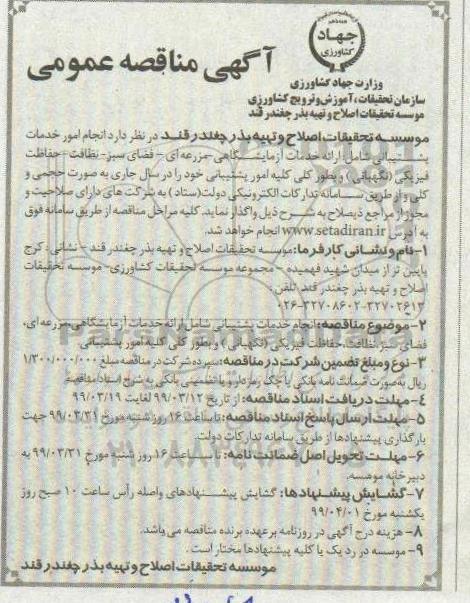 جهاد
کشاورزی
آگهی مناقصه عمومی
وزارت جهاد کشاورزی
سازمان تحقیقات، آموزش و ترویج کشاورزی
موسسه تحقیقات اصلاح و تهیه بذر چغندر قند
موسسه تحقیقات اصلاح و تهیه بذر چغندر قند در نظر دارد انجام امور خدمات
پشتیبانی شامل ارائه خدمات آزمایشگاهی -مزرعه ای - فضای سبز- نظافت -حفاظت
فیزیکی (نگهبانی) و بطور کلی کلیه امور پشتیبانی خود را در سال جاری به صورت حجمی و
کلی و از طریق سامانه تدارکات الکترونیکی دولت(ستاد) به شرکت های دارای صلاحیت و
مجوز از مراجع ذیصلاح به شرح ذیل واگذار نماید. کلیه مراحل مناقصه از طریق سامانه فوق
به آدرس www.setadiran.ir انجام خواهد شد.
۱-نام و نشانی کارفرما: موسسه تحقیقات اصلاح و تهیه بذر چغندر قند - نشانی: کرج
پایین تر از میدان شهید فهمیده - مجموعه موسسه تحقیقات کشاورزی- موسسه تحقیقات
اصلاح و تهیه بذر چغندر قند تلفن:
۰۲۶-۳۲۷۰۸۶۰۲-۳۲۷۰۲۶۱۳
۲-موضوع مناقصه: انجام خدمات پشتیبانی شامل ارائه خدمات آزمایشگاهی، مزرعه ای،
فضای سبز، نظافت، حفاظت فیزیکی (نگهبانی) و بطور کلی کلیه امور پشتیبانی
۳-نوع و مبلغ تضمین شرکت در مناقصه: سپرده شرکت در مناقصه مبلغ ۱/۳۰۰/۰۰۰/۰۰۰
ریال به صورت ضمانت نامه بانکی یا چک رمزدار و یا تضمینی بانکی به شرح اسناد مناقصه
۴-مهلت دریافت اسناد مناقصه: از تاریخ ۹۹/۰۳/۱۲ لغایت ۹۹/۰۳/۱۹
۵-مهلت ارسال پاسخ اسناد مناقصه: تا ساعت ۱۶ روز شنبه مورخ ۹۹/۰۳/۳۱ جهت
بارگذاری پیشنهادها از طریق سامانه تدارکات دولت.
۶-مهلت تحویل اصل ضمانت نامه: تا ساعت ۱۶ روز شنبه مورخ ۹۹/۰۳/۳۱ به
دبیرخانه موسسه.
۷-گشایش پیشنهادها: گشایش پیشنهادهای واصله رأس ساعت ۱۰ صبح روز
یکشنبه مورخ ۹۹/۰۴/۰۱
۸- هزینه درج آگهی در روزنامه بر عهده برنده مناقصه می باشد.
۹- موسسه در رد یک یا کلیه پیشنهادها مختار است.
موسسه تحقیقات اصلاح و تهیه بذر چغندر قند